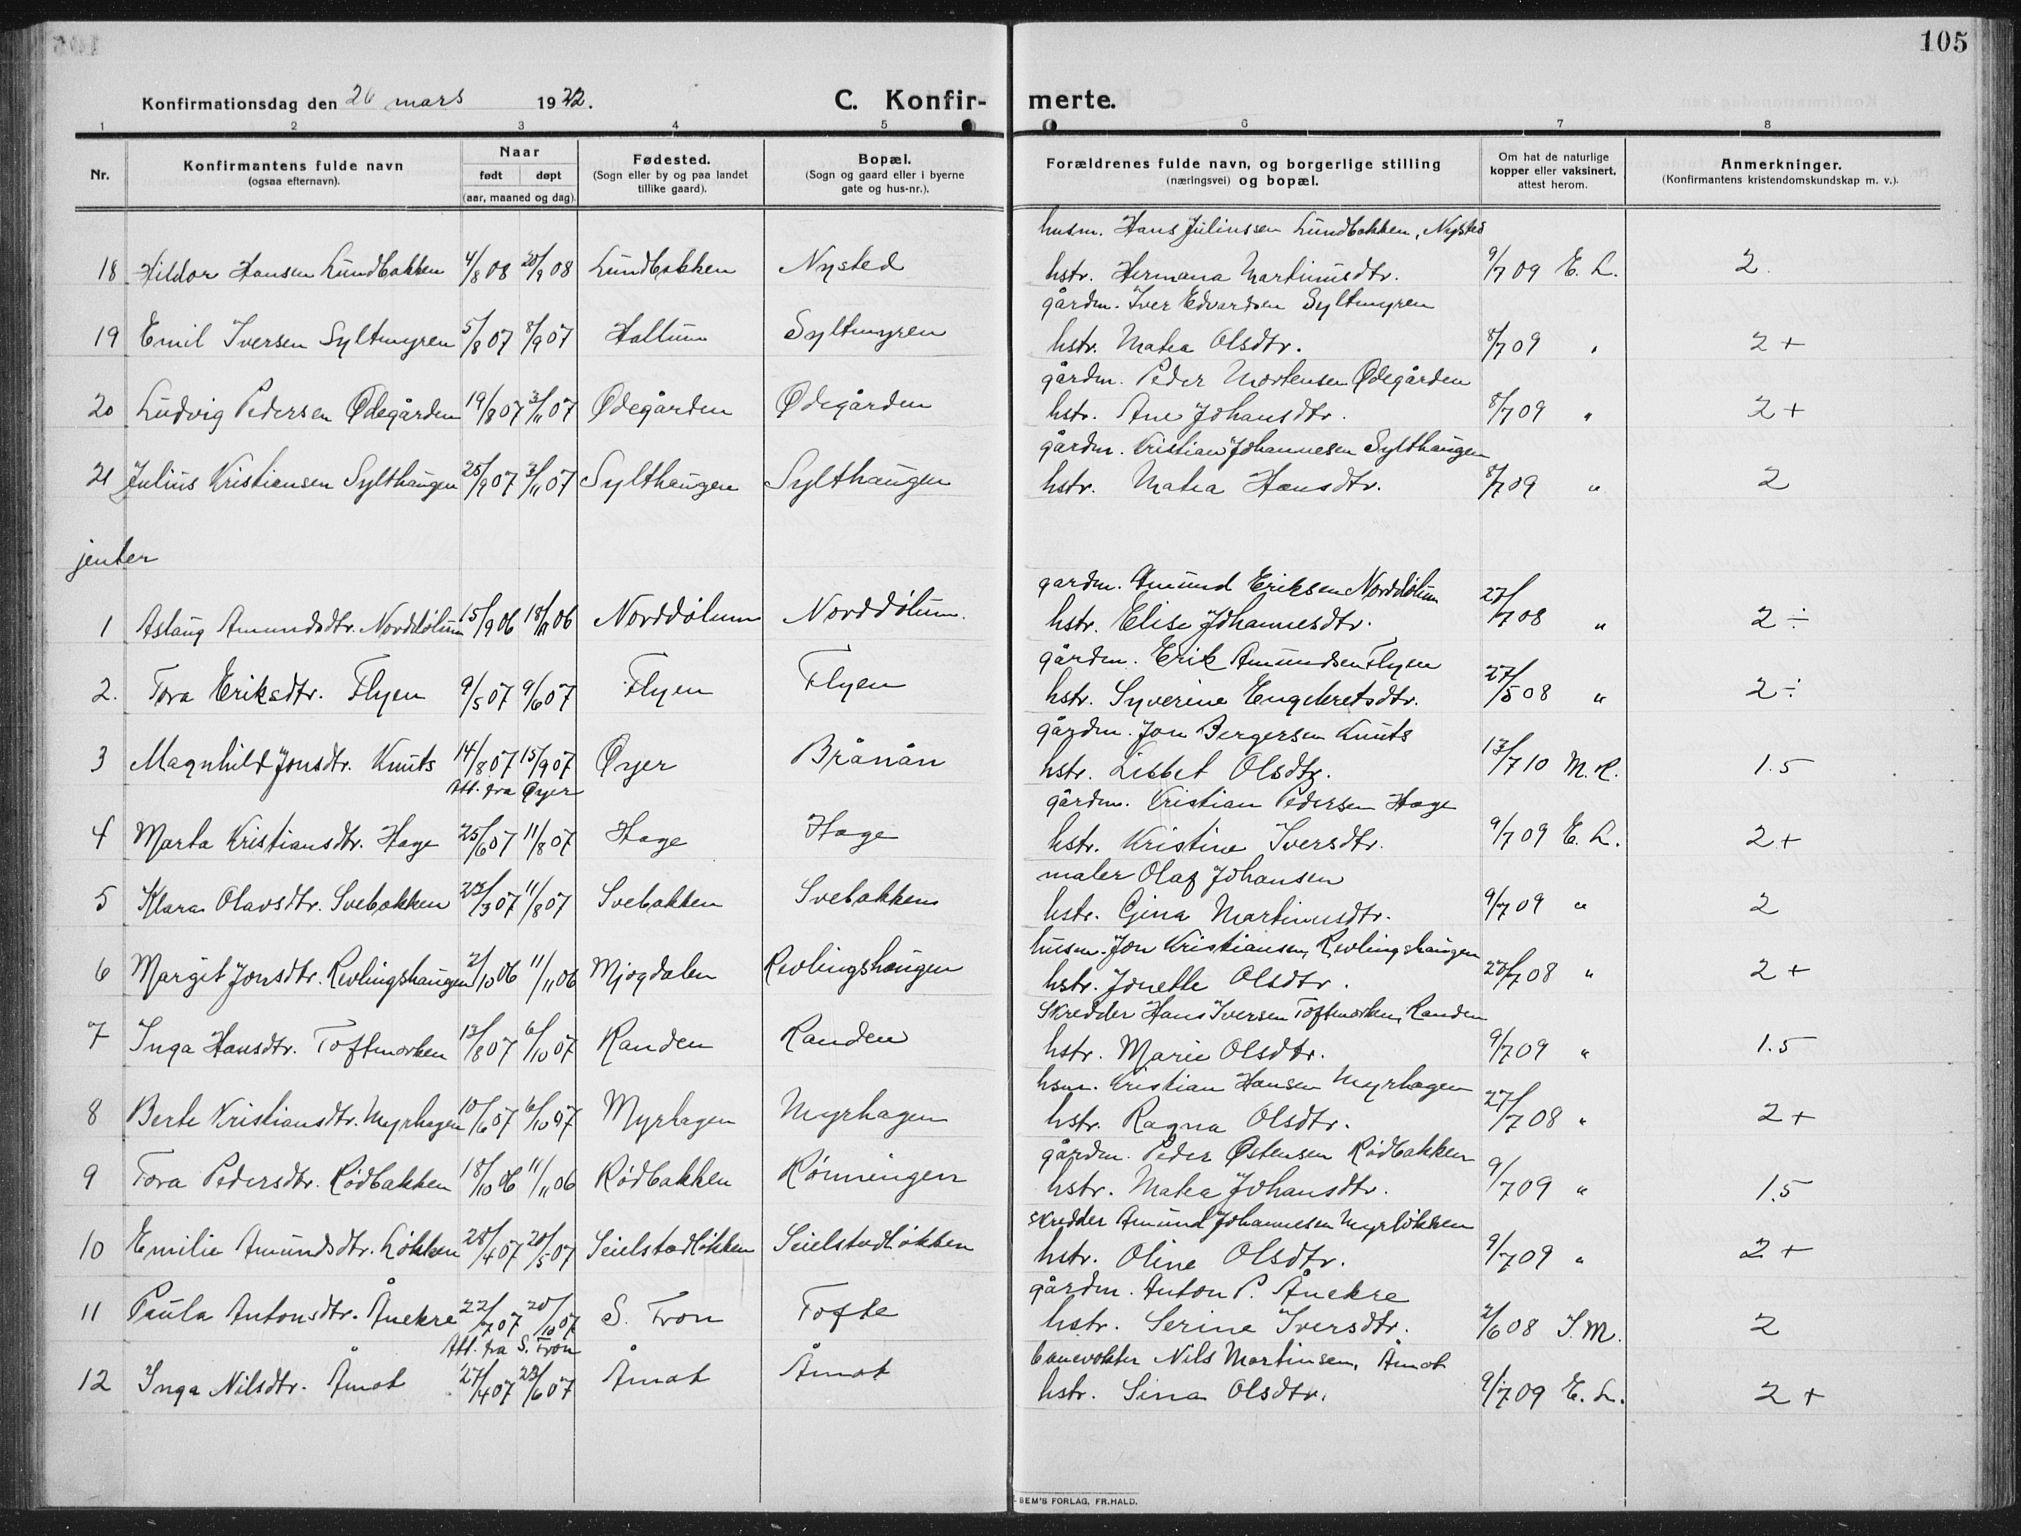 105
Konfirmationsdag den 26 mars 1922.
C. Konfir- merte.
1 2 3 4 5 6 7 8
Nr.
Konfirmantens fulde navn
(ogsaa efternavn).
Naar
født døpt
(aar, maaned og dag).
Fødested.
(Sogn eller by og paa landet
tillike gaard).
Bopæl.
(Sogn og gaard eller i byerne
gate og hus-nr.).
Forældrenes fulde navn, og borgerlige stilling
(næringsvei) og bopæl.
Om hat de naturlige
kopper eller vaksinert,
attest herom.
Anmerkninger.
(Konfirmantens kristendomskundskap m. v.).
husm. Hans Juliussen Lundbakken, Nysted
18 Hildor Hansen Lundbakken 4/8 08 20/9 08 Lundbakken Nysted hstr. Hermana Martinusdtr. 9/7 09 E. L. 2.
gårdm. Iver Edvardsen Syltmyren
19 Emil Iversen Syltmyren 5/8 07 8/9 07 Hallum Syltmyren hstr. Matea Olsdtr. 8/7 09 " 2 +
gårdm. Peder Mortensen Ødegården
20 Ludvig Pedersen Ødegården 19/8 07 3/11 07 Ødegården Ødegården hstr. Ane Johansdtr. 8/7 09 " 2 +
gårdm. Kristian Johannesen Sylthaugen
21 Julius Kristiansen Sylthaugen 25/9 07 3/11 07 Sylthaugen Sylthaugen hstr. Matea Hansdtr. 8/7 09 " 2
jenter
gardm. Amund Eriksen Norddølum
1 Aslaug Amundsdtr. Norddølum 15/9 06 18/11 06 Norddølum Norddølum. hstr. Elise Johannesdtr. 27/7 08 " 2 ÷
gårdm. Erik Amundsen Flyen
2. Tora Eriksdtr. Flyen 9/5 07 9/6 07 Flyen Flyen hstr. Syverine Engebretsdtr. 27/5 08 " 2 ÷
gårdm. Jon Bergersen Knuts
3 Magnhild Jonsdtr. Knuts 14/8 07 15/9 07 Øyer Brånån hstr. Lisbet Olsdtr. 13/7 10 M. R. 1.5
Att. fra Øyer
gårdm. Kristian Pedersen Hage
4 Marta Kristiansdtr. Hage 25/6 07 11/8 07 Hage Hage hstr. Kristine Iversdtr. 9/7 09 E. L. 2 +
maler Olaf Johansen
5 Klara Olavsdtr. Svebakken 23/3 07 11/8 07 Svebakken Svebakken hstr. Gina Martinusdtr. 9/7 09 " 2
husm. Jon Kristiansen, Revlingshaugen
6 Margit Jonsdtr. Revlingshaugen 2/10 06 11/11 06 Mjogdalen Revlingshaugen hstr. Jonette Olsdtr. 23/7 08 " 2 +
Skredder Hans Iversen Toftmorken, Randen
7 Inga Hansdtr. Toftmorken 13/8 07 6/10 07 Randen Randen hstr. Marie Olsdtr. 9/7 09 " 1.5
hsm. Kristian Hansen Myrhagen
8 Berte Kristiansdtr. Myrhagen 10/6 07 6/10 07 Myrhagen Myrhagen hstr. Ragna Olsdtr. 27/7 08 " 2 +
gårdm. Peder Østensen Rødbakken
9 Tora Pedersdtr. Rødbakken 18/10 06 11/11 06 Rødbakken Rønningen hstr. Matea Johansdtr. 9/7 09 " 1.5
skredder Amund Johannesen Myrløkken
10 Emilie Amundsdtr. Løkken 28/4 07 20/5 07 Seielstadløkken Seielstadløkken hstr. Oline Olsdtr. 9/7 09 " 2 +
gårdm. Anton P. Ånekre
11 Paula Antonsdtr. Ånekre 22/7 07 20/10 07 S. Fron Tofte hstr. Serine Iversdtr. 2/6 08 I. M. 2
Att. fra S. Fron
banevokter Nils Martinsen, Åmot
12 Inga Nilsdtr. Åmot 27/4 07 23/6 07 Åmot Åmot hstr. Sina Olsdtr. 9/7 09 E. L. 2 +
SEM'S FORLAG, FR.HALD.